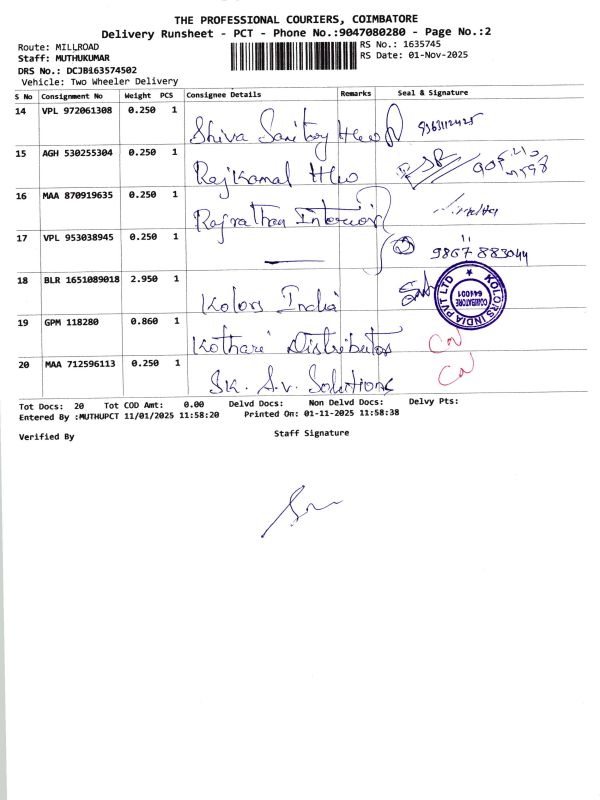 THE PROFESSIONAL COURIERS, COIMBATORE
Delivery Runsheet - PCT - Phone No.:9047080280 - Page No.:2
Route: MILLROAD RS No.: 1635745
Staff: MUTHUKUMAR RS Date: 01-Nov-2025
DRS No.: DCJB163574502
Vehicle: Two Wheeler Delivery
S No Consignment No Weight PCS Consignee Details Remarks Seal & Signature
14 VPL 972061308 0.250 1 Shiva Sanitry
15 AGH 530255304 0.250 1 Rajkamal H/w
16 MAA 870919635 0.250 1 Rajrathan Interior
17 VPL 953038945 0.250 1 " 9867 883044
18 BLR 1651089018 2.950 1 Kolors India KOLORS INDIA PVT LTD COIMBATORE 641001
19 GPM 118280 0.860 1 Kothari Distributos
20 MAA 712596113 0.250 1 SK. A.V. Solutions
Tot Docs: 20 Tot COD Amt: 0.00 Delvd Docs: Non Delvd Docs: Delvy Pts:
Entered By :MUTHUPCT 11/01/2025 11:58:20 Printed On: 01-11-2025 11:58:38
Verified By Staff Signature